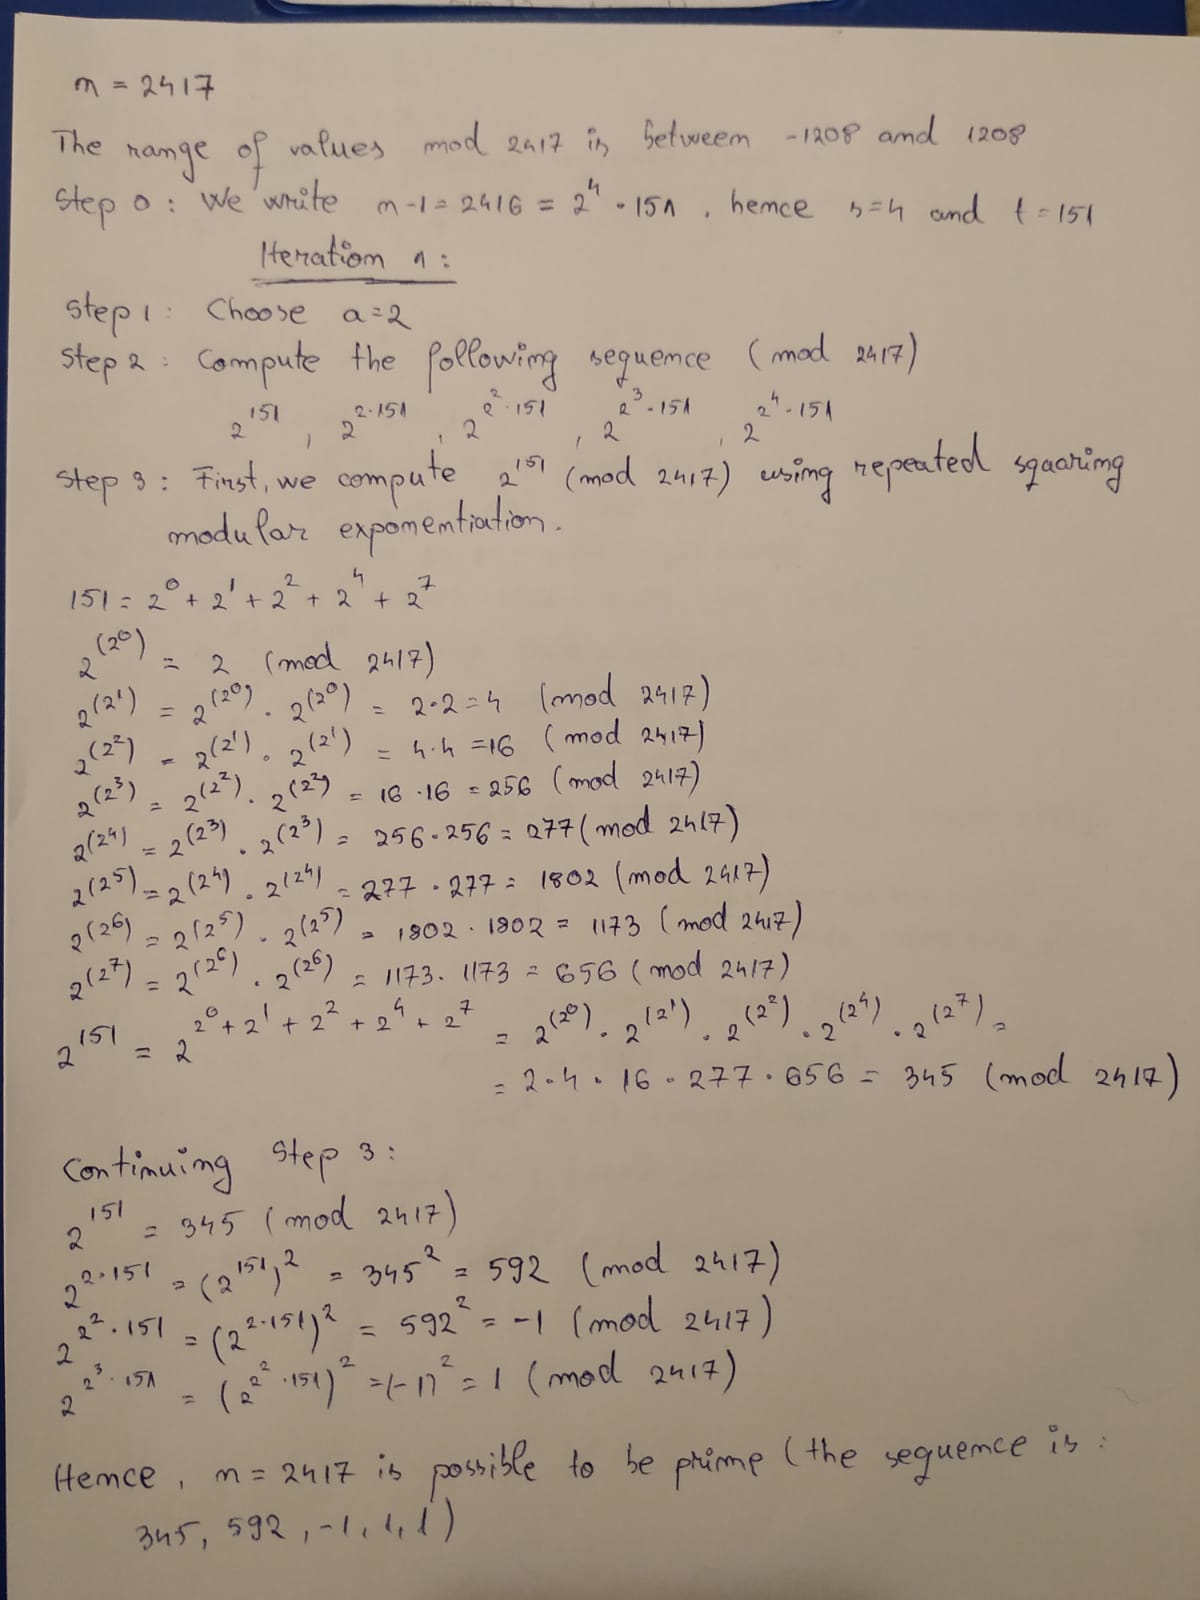 n = 2417
The range of values mod 2417 is between -1208 and 1208
Step 0 : We write n-1 = 2416 = 2^4 · 151 , hence s=4 and t=151
Iteration 1 :
Step 1 : Choose a=2
Step 2 : Compute the following sequence (mod 2417)
2^151 , 2^(2·151) , 2^(2^2·151) , 2^(2^3·151) , 2^(2^4·151)
Step 3 : First, we compute 2^151 (mod 2417) using repeated squaring
modular exponentiation.
151 = 2^0 + 2^1 + 2^2 + 2^4 + 2^7
2^(2^0) = 2 (mod 2417)
2^(2^1) = 2^(2^0) · 2^(2^0) = 2·2 = 4 (mod 2417)
2^(2^2) = 2^(2^1) · 2^(2^1) = 4·4 = 16 (mod 2417)
2^(2^3) = 2^(2^2) · 2^(2^2) = 16 · 16 = 256 (mod 2417)
2^(2^4) = 2^(2^3) · 2^(2^3) = 256 · 256 = 277 (mod 2417)
2^(2^5) = 2^(2^4) · 2^(2^4) = 277 · 277 = 1802 (mod 2417)
2^(2^6) = 2^(2^5) · 2^(2^5) = 1802 · 1802 = 1173 (mod 2417)
2^(2^7) = 2^(2^6) · 2^(2^6) = 1173 · 1173 = 656 (mod 2417)
2^151 = 2^(2^0 + 2^1 + 2^2 + 2^4 + 2^7) = 2^(2^0) · 2^(2^1) · 2^(2^2) · 2^(2^4) · 2^(2^7) =
= 2 · 4 · 16 · 277 · 656 = 345 (mod 2417)
Continuing Step 3 :
2^151 = 345 (mod 2417)
2^(2·151) = (2^151)^2 = 345^2 = 592 (mod 2417)
2^(2^2·151) = (2^(2·151))^2 = 592^2 = -1 (mod 2417)
2^(2^3·151) = (2^(2^2·151))^2 = (-1)^2 = 1 (mod 2417)
Hence , n = 2417 is possible to be prime (the sequence is :
345, 592, -1, 1, 1)